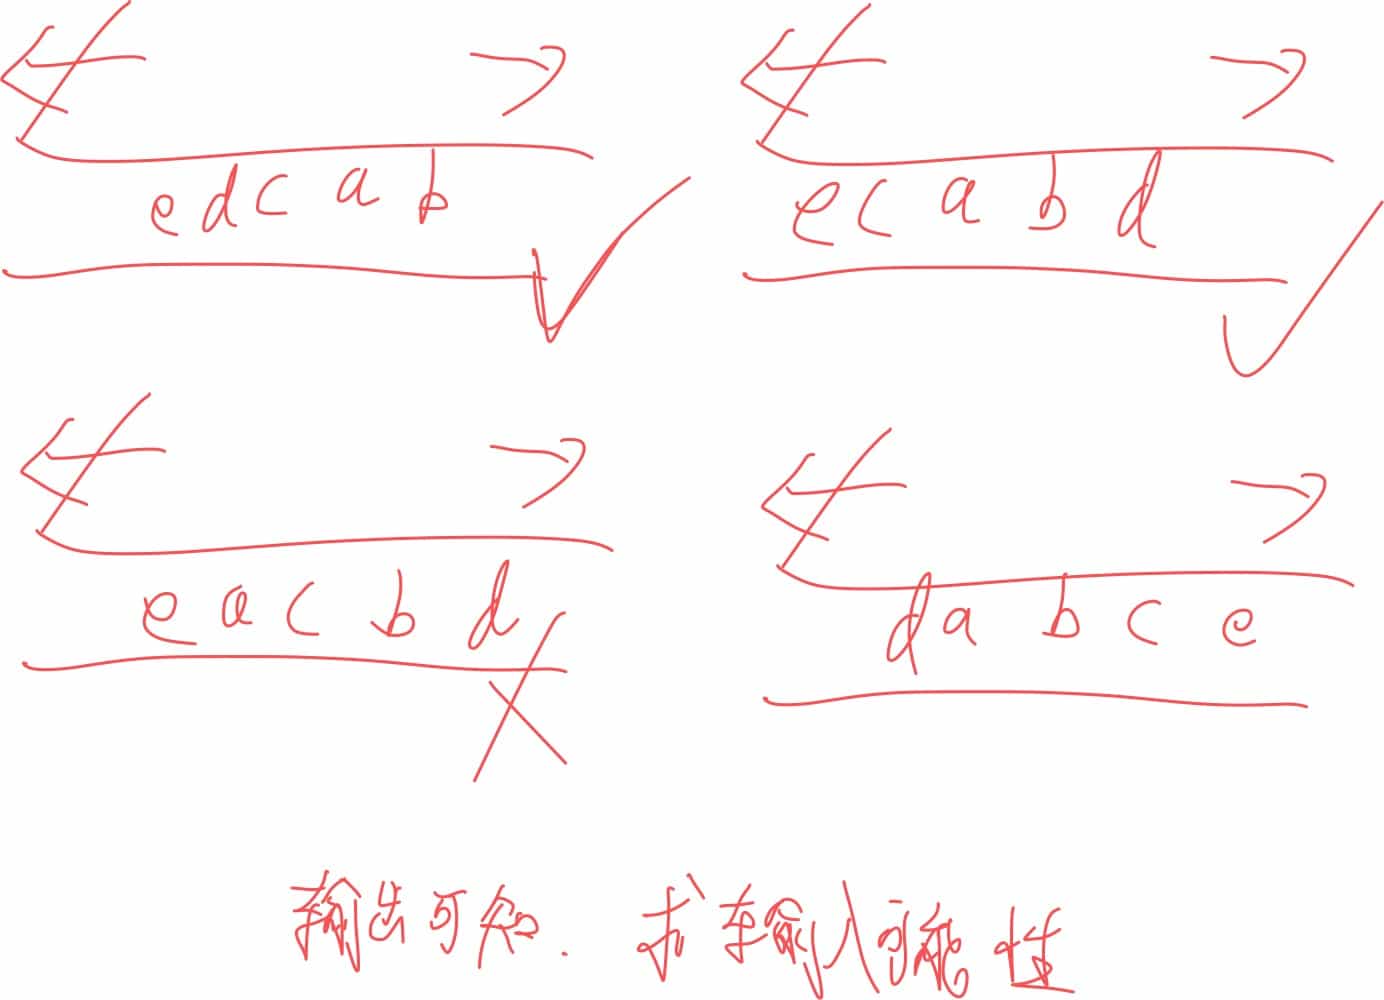 e d c a b
e c a b d
e a c b d
d a b c e
输出可知. 求输入可能性